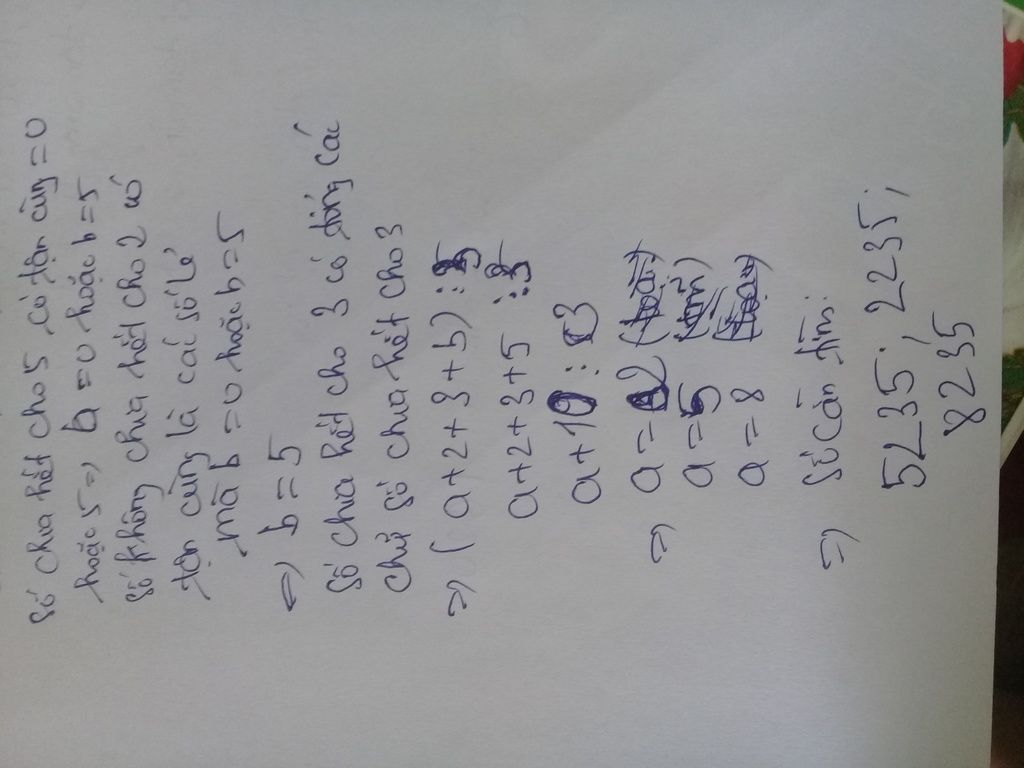 Số chia hết cho 5 có tận cùng = 0
hoặc 5 => b = 0 hoặc b = 5
Số không chia hết cho 2 có
tận cùng là các số lẻ
mà b = 0 hoặc b = 5
<=> b = 5
Số chia hết cho 3 có tổng các
chữ số chia hết cho 3
=> (a + 2 + 3 + b) :
a + 2 + 3 + 5 :
a + 10 : 3
=> a = 2
a = 5
a = 8
=> Số cần tìm:
5235; 2235;
8235